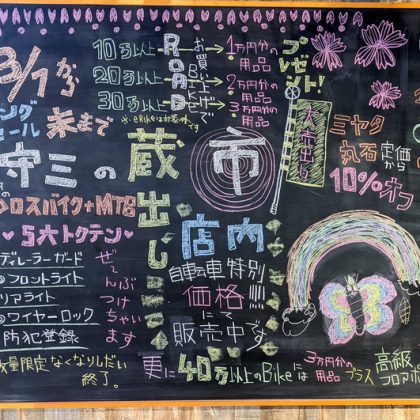 3/1から
末まで
10万以上
20万以上
30万以上
ROAD
お買い上げで
1万円分の用品
2万円分の用品
3万円分の用品
プレゼント!
※eBikeは対象外です
大売出し
ミヤタ
丸石定価から
10%オフ
守三の
蔵出し
市
クロスバイク+MTB
♥5大トクテン♥
ディレーラーガード
フロントライト
リアライト
ワイヤーロック
防犯登録
ぜーんぶつけちゃいます
数量限定なくなりしだい
終了。
店内
自転車特別
価格!!!!
にて
販売中です
更に40万以上のBikeには
3万円分の用品
プラス
高級